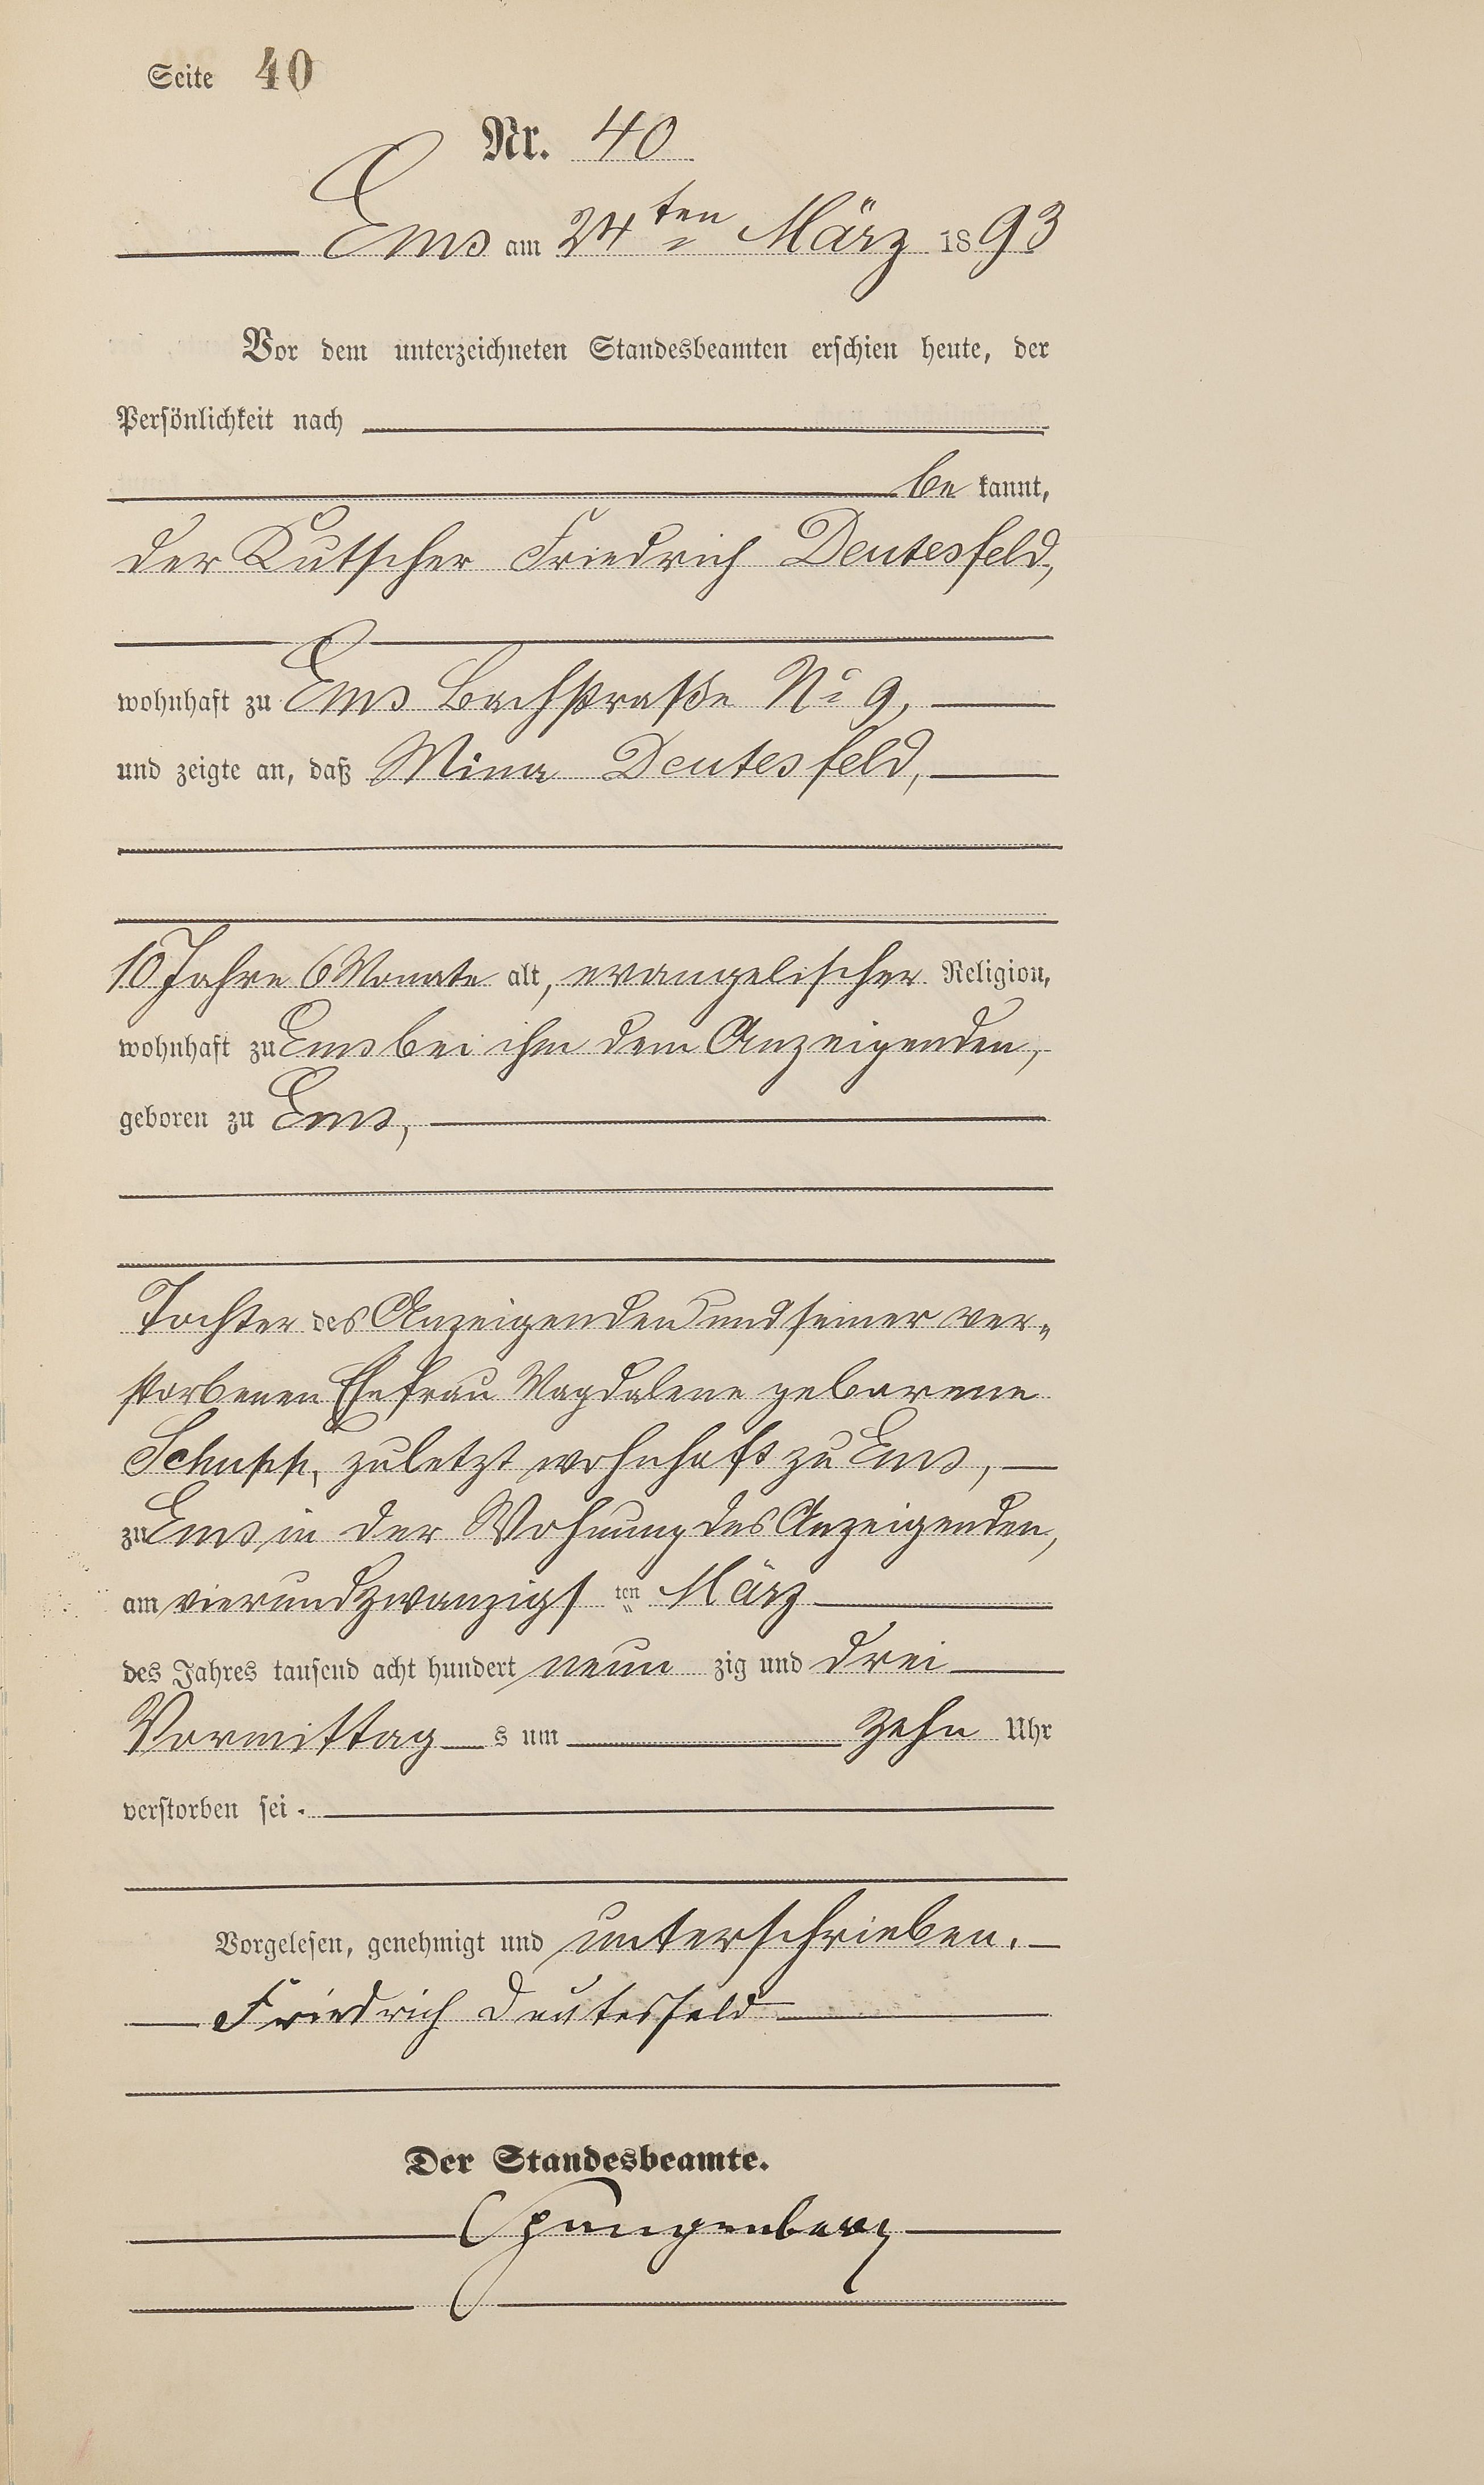 Seite 40
Nr. 40
Ems am 24ten März 1893
Vor dem unterzeichneten Standesbeamten erschien heute, der
Persönlichkeit nach
be kannt,
der Kutscher Friedrich Deutesfeld,
wohnhaft zu Ems Bachstraße No 9,
und zeigte an, daß Mina Deutesfeld,
10 Jahre 6 Monate alt, evangelischer Religion,
wohnhaft zu Ems bei ihm dem Anzeigenden,
geboren zu Ems,
Tochter des Anzeigenden und seiner ver-
storbenen Ehefrau Magdalene geborene
Schupp, zuletzt wohnhaft zu Ems,
zu Ems in der Wohnung des Anzeigenden,
am vierundzwanzigs ten März
des Jahres tausend acht hundert neun zig und drei
Vormittag s um zehn Uhr
verstorben sei.
Vorgelesen, genehmigt und unterschrieben.
Friedrich Deutesfeld
Der Standesbeamte.
Spangenberg